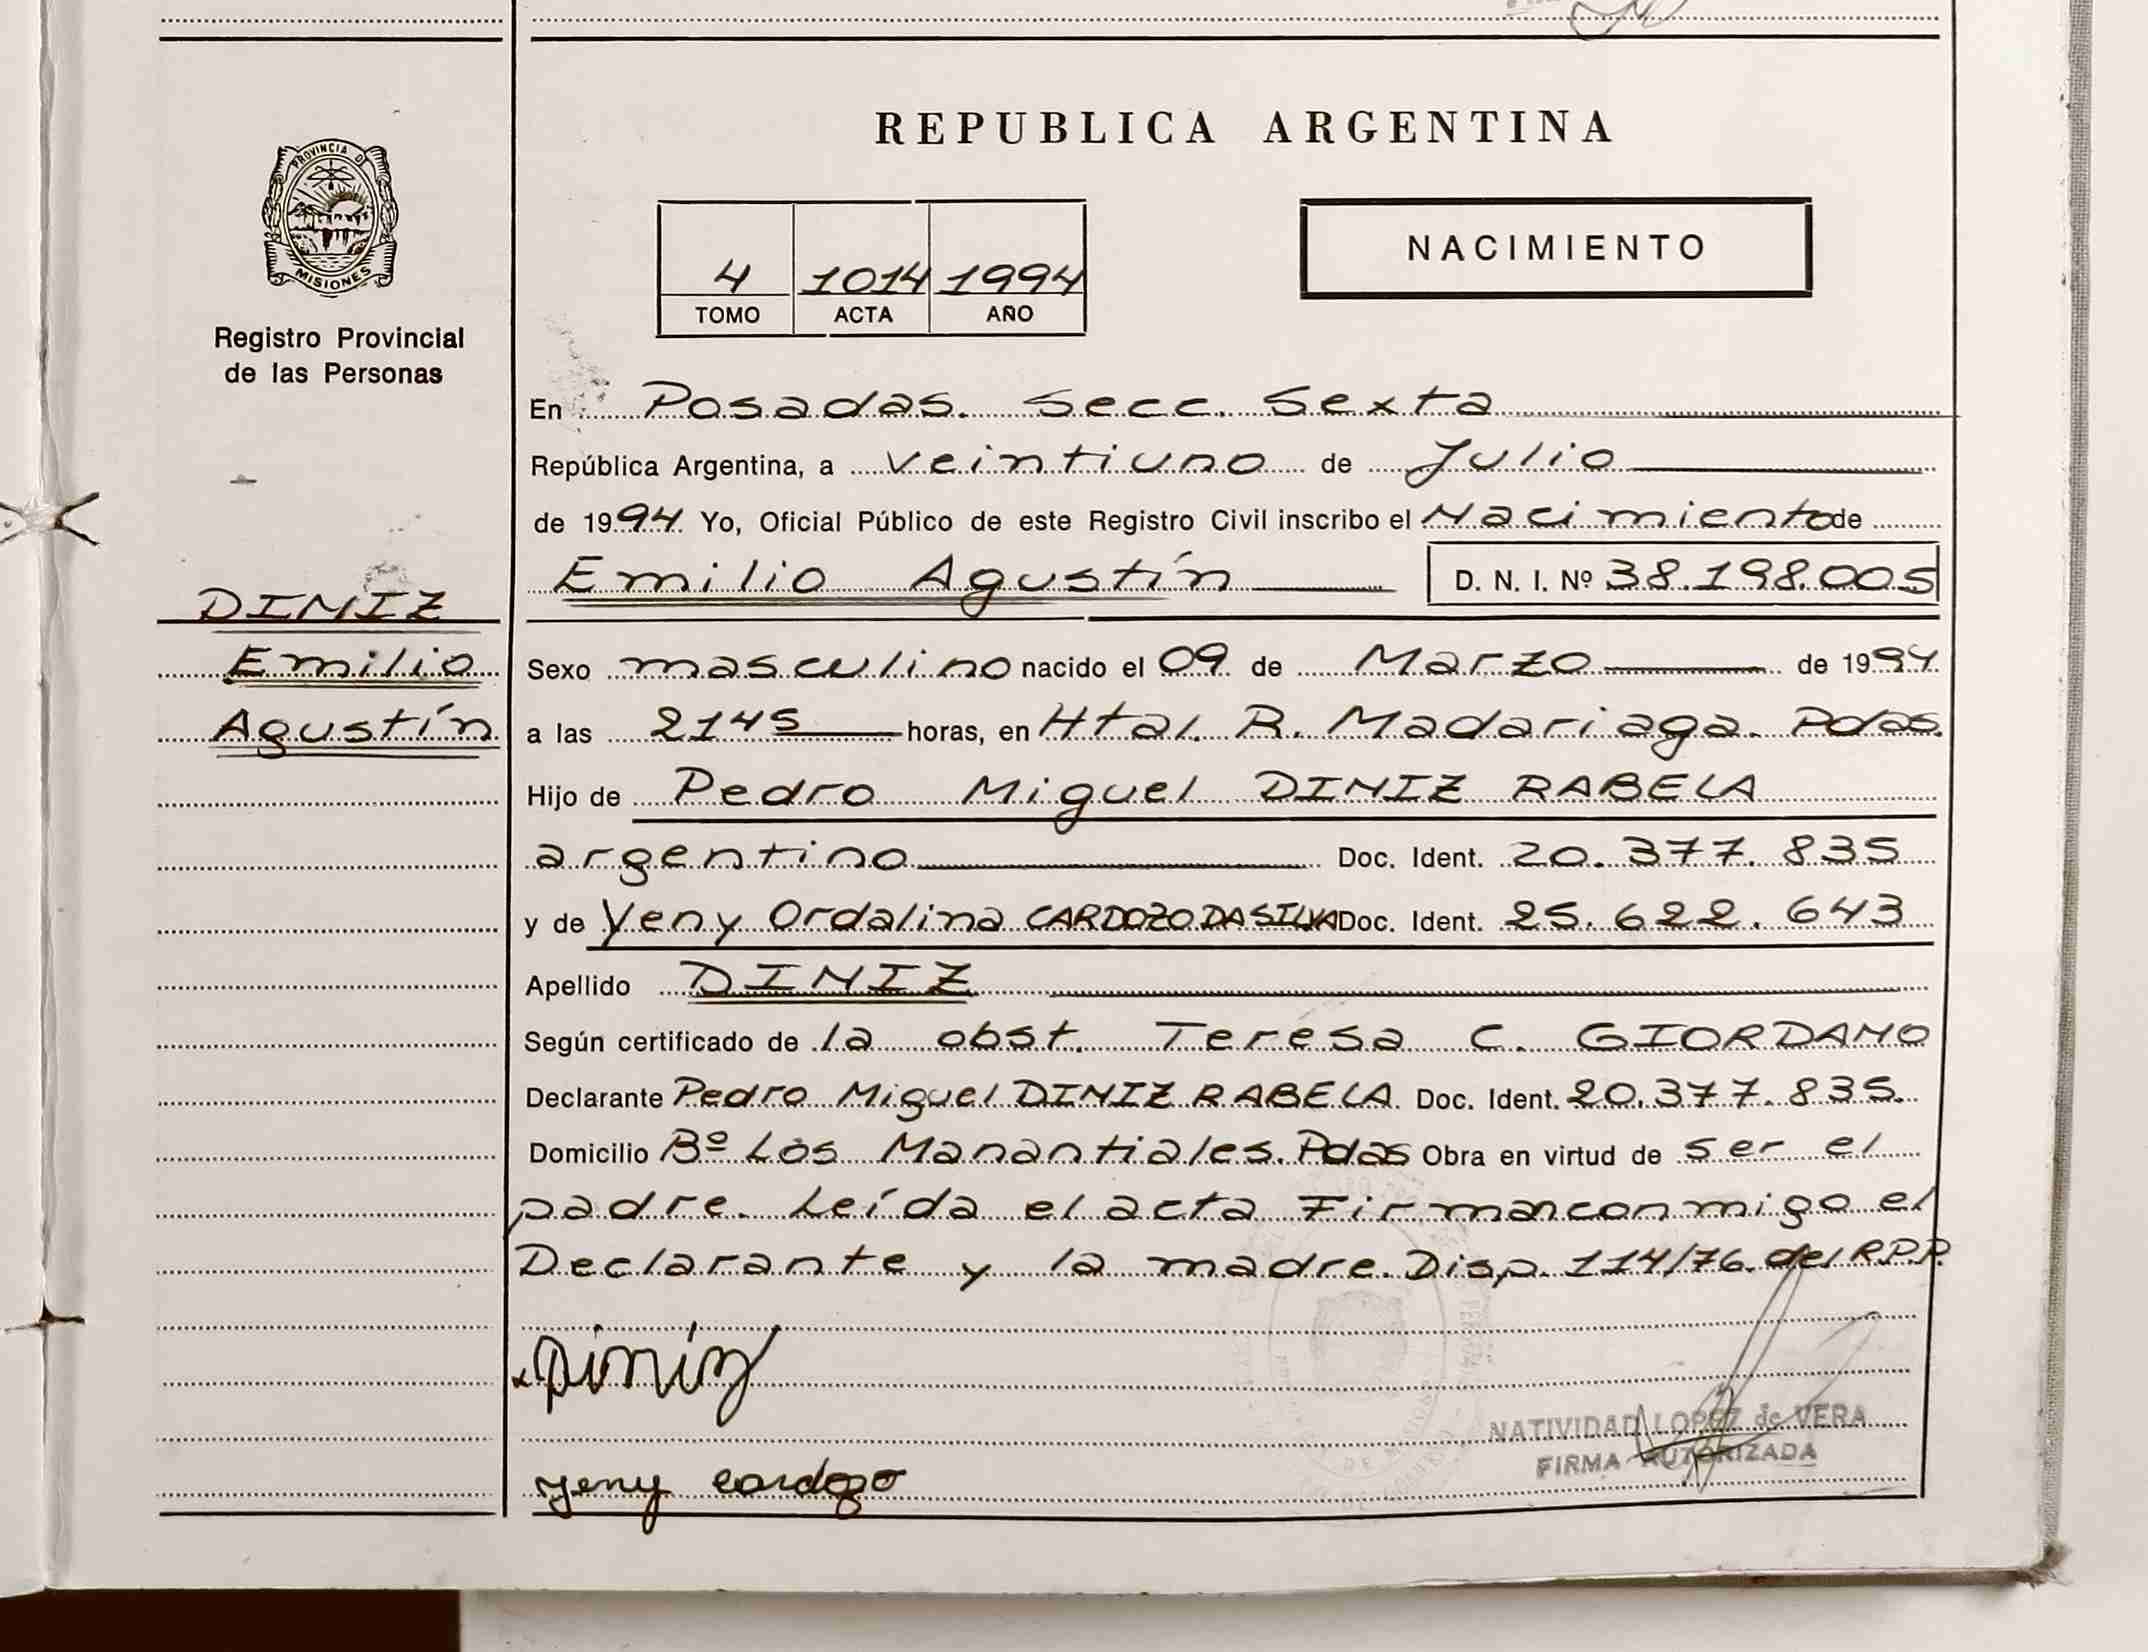 REPUBLICA ARGENTINA
PROVINCIA D
MISIONES
Registro Provincial
de las Personas
4 1014 1994
TOMO ACTA AÑO
NACIMIENTO
En Posadas. Secc. Sexta
República Argentina, a veintiuno de Julio
de 1994. Yo, Oficial Público de este Registro Civil inscribo el Nacimiento de
Emilio Agustín D. N. I. Nº 38.198.005
DINIZ
Emilio
Agustín
Sexo masculino nacido el 09 de Marzo de 1994.
a las 2145 horas, en Htal. R. Madariaga. Pdas.
Hijo de Pedro Miguel DINIZ RABELA
argentino Doc. Ident. 20.377.835
y de Yeny Ordalina CARDOZO DA SILVA Doc. Ident. 25.622.643
Apellido DINIZ
Según certificado de la obst. Teresa C. GIORDANO
Declarante Pedro Miguel DINIZ RABELA. Doc. Ident. 20.377.835.
Domicilio Bº Los Manantiales. Pdas Obra en virtud de ser el
padre. Leída el acta Firman conmigo el
Declarante y la madre. Disp. 114/76. del R.P.P.
Diniz
NATIVIDAD LOPEZ de VERA
FIRMA AUTORIZADA
yeny cardozo